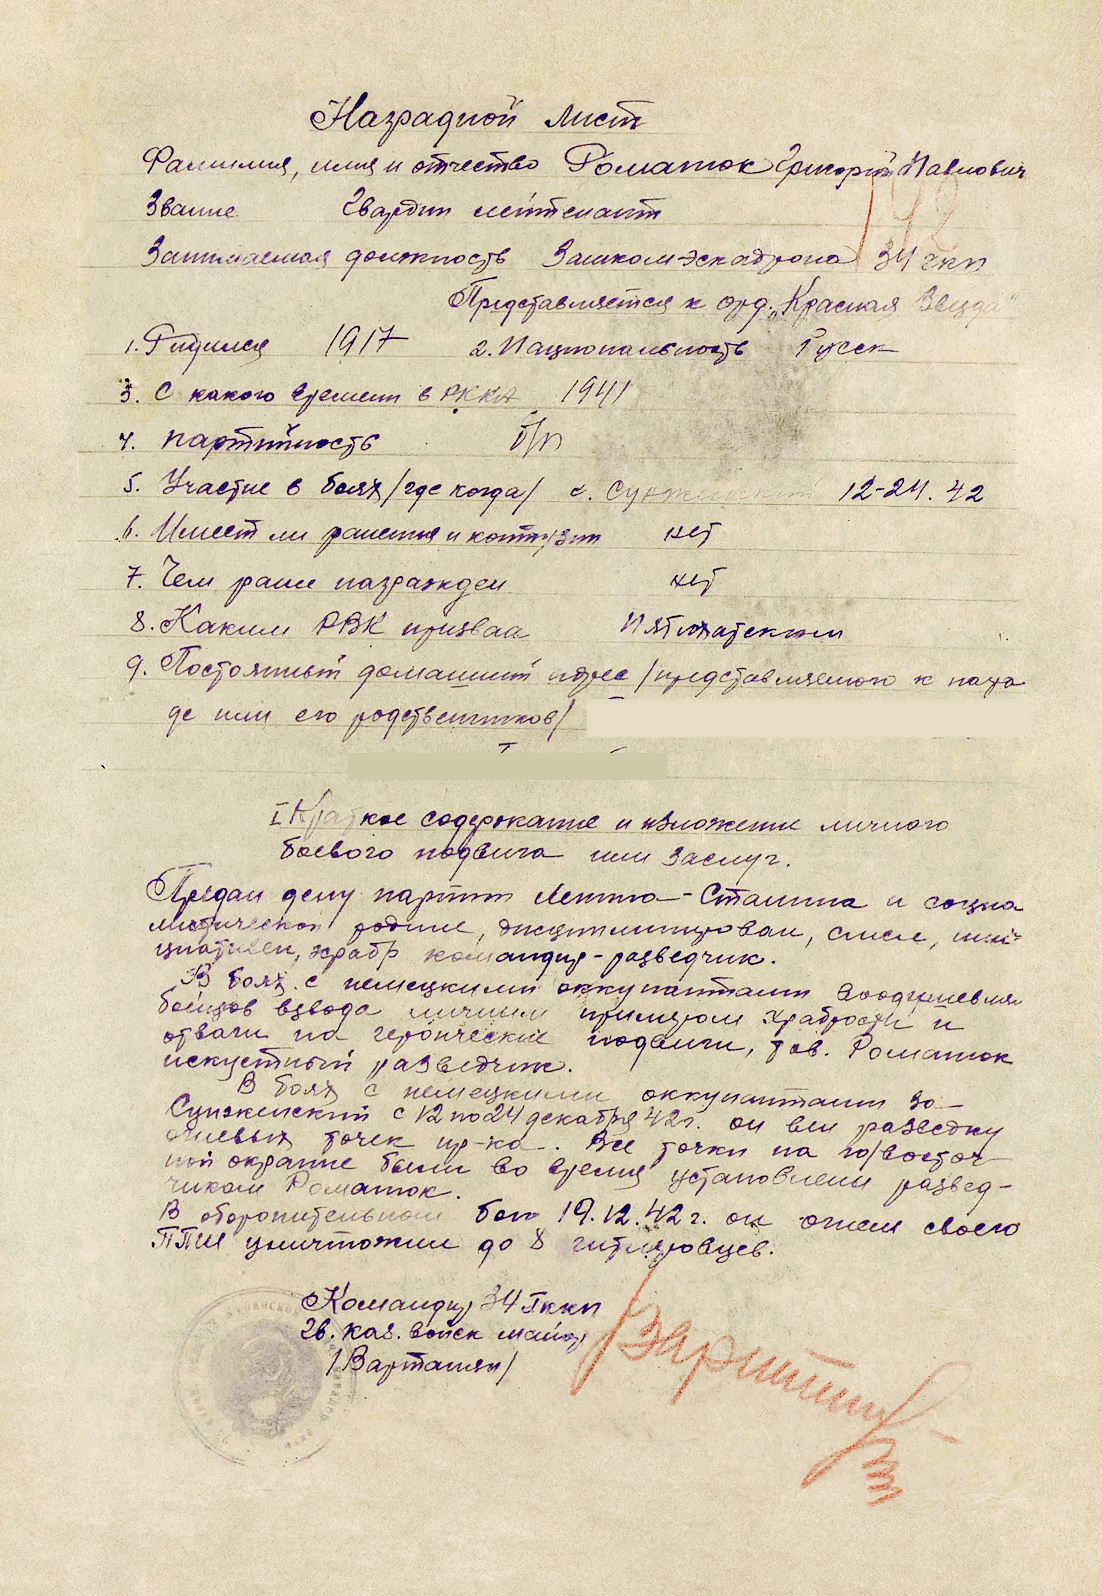 Наградной лист
Фамилия, имя и отчество Романюк Григорий Павлович
Звание Гвардии лейтенант
Занимаемая должность Зам.ком.эскадрона 34 гкп
Представляется к орд. „Красная Звезда"
1. Родился 1917 2. Национальность Русск
3. С какого времени в РККА 1941
4. партийность б/п
5. Участие в боях /где когда/ с. Сунженский 12-24.42
6. Имеет ли ранения и контузии нет
7. Чем ранее награжден нет
8. Каким РВК призван
9. Постоянный домашний адрес /представляемого к награ
де или его родственников/
I Краткое содержание и изложение личного
боевого подвига или заслуг.
Предан делу партии Ленина-Сталина и социа
листической родине, дисциплинирован, смел, ини-
циативен, храбр командир-разведчик.
В боях с немецкими оккупантами воодушевлял
бойцов взвода личным примером храбрости и
отваги на геройческие подвиги, тов. Романюк
искустный разведчик.
В боях с немецкими оккупантами за
Сунженский с 12 по 24 декабря 42 г. он вел разведку
огневых точек пр-ка. Все точки на ю/восточ-
ной окраине были во время установлены развед-
чиком Романюк.
В оборонительном бою 19.12.42 г. он огнем своего
ППШ уничтожил до 8 гитлеровцев.
Командир 34 Гккп
гв. каз. войск майор
/Вартанян/